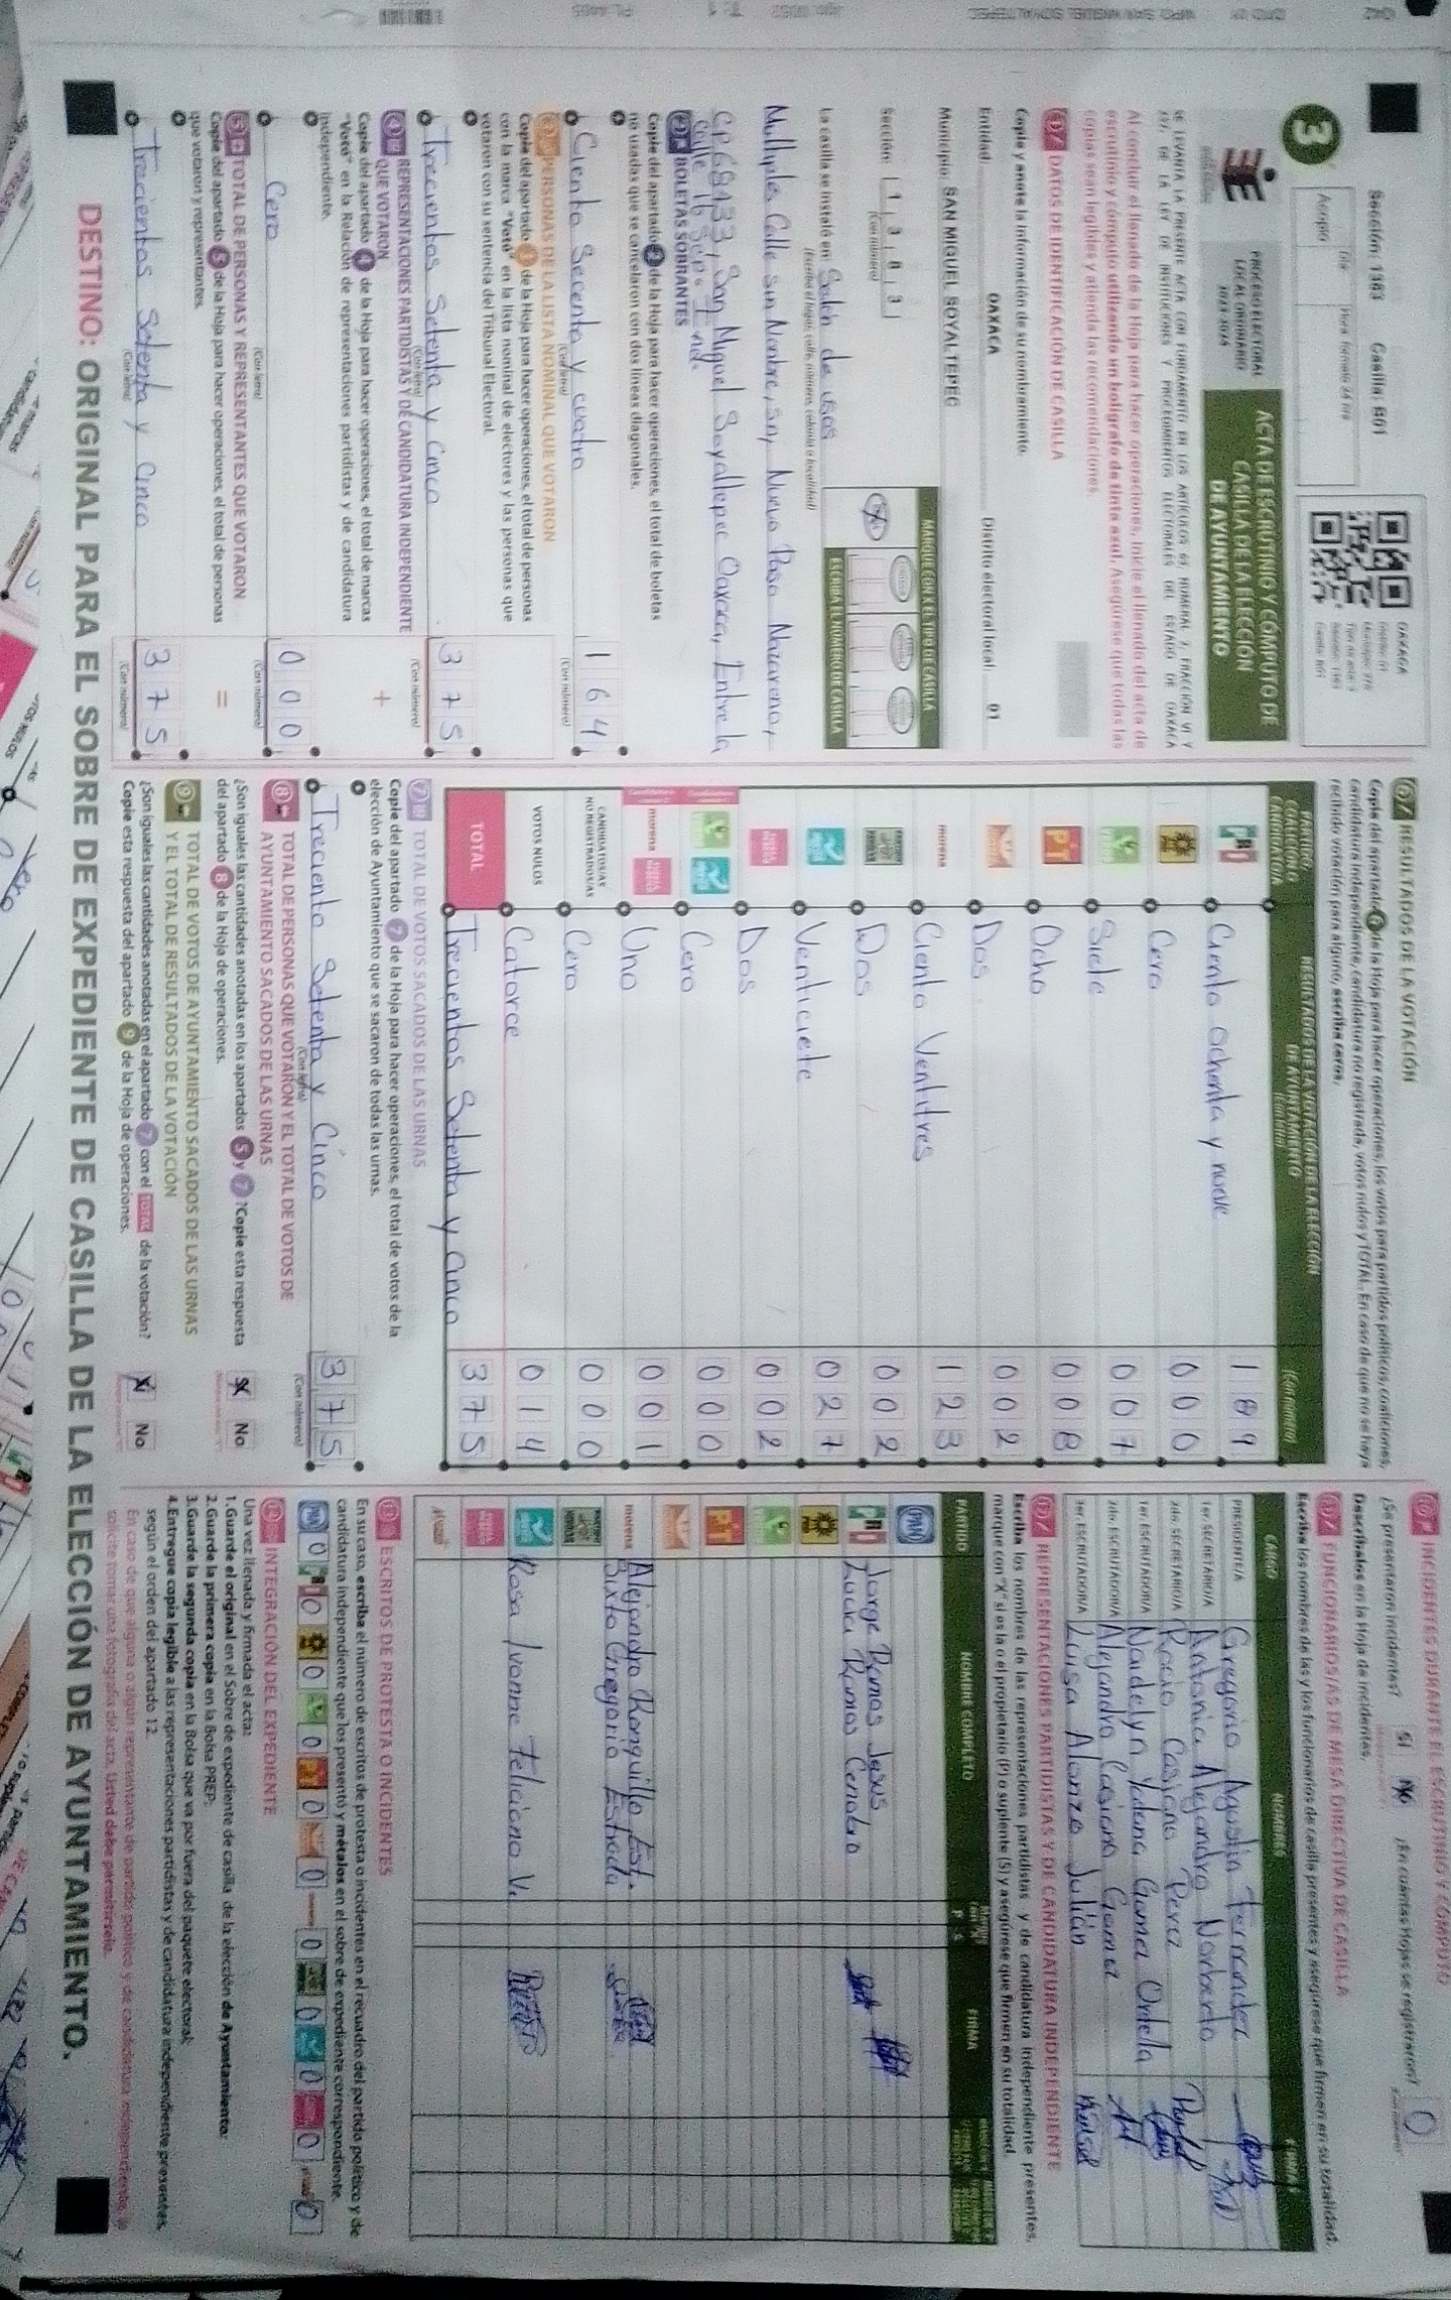 OAXACA
Sección: 1383 Casilla: B01
3
Acopio
Día
Hora formato 24 hrs
PROCESO ELECTORAL
LOCAL ORDINARIO
2023-2024
ACTA DE ESCRUTINIO Y CÓMPUTO DE
CASILLA DE LA ELECCIÓN
DE AYUNTAMIENTO
SE LEVANTA LA PRESENTE ACTA CON FUNDAMENTO EN LOS ARTÍCULOS
DE LA LEY DE INSTITUCIONES Y PROCEDIMIENTOS ELECTORALES DEL ESTADO DE OAXACA
Al concluir el llenado de la Hoja para hacer operaciones, inicie el llenado del acta de
escrutinio y cómputo utilizando un bolígrafo de tinta azul. Asegúrese que todas las
copias sean legibles y atienda las recomendaciones.
1 DATOS DE IDENTIFICACIÓN DE CASILLA
Copie y anote la información de su nombramiento.
Entidad: OAXACA Distrito electoral local: 01
Municipio: SAN MIGUEL SOYALTEPEC
Sección: 1 3 8 3
(Con número)
MARQUE CON X EL TIPO DE CASILLA
ESCRIBA EL NÚMERO DE CASILLA
La casilla se instaló en: Salón de usos
(Escriba el lugar, calle, número, colonia o localidad)
Multiples Calle Sin Nombre, S/n, Nuevo Paso Nazareno,
C.P 68433, San Miguel Soyaltepec Oaxaca, Entre la
calle 16 Sep. e Ind.
2 BOLETAS SOBRANTES
Copie del apartado 2 de la Hoja para hacer operaciones, el total de boletas
no usadas que se cancelaron con dos líneas diagonales.
Ciento Secenta y cuatro 164
(Con letra) (Con número)
3 PERSONAS DE LA LISTA NOMINAL QUE VOTARON
Copie del apartado 3 de la Hoja para hacer operaciones, el total de personas
con la marca "Votó" en la lista nominal de electores y las personas que
votaron con su sentencia del Tribunal Electoral.
Trecientos Setenta y Cinco 375
(Con letra) (Con número)
4 REPRESENTACIONES PARTIDISTAS Y DE CANDIDATURA INDEPENDIENTE
QUE VOTARON +
Copie del apartado 4 de la Hoja para hacer operaciones, el total de marcas
"Votó" en la Relación de representaciones partidistas y de candidatura
independiente.
Cero 000
(Con letra) (Con número)
5 TOTAL DE PERSONAS Y REPRESENTANTES QUE VOTARON
Copie del apartado 5 de la Hoja para hacer operaciones, el total de personas =
que votaron y representantes.
Trecientos Setenta y Cinco 375
(Con letra) (Con número)
6 RESULTADOS DE LA VOTACIÓN
Copie del apartado 6 de la Hoja para hacer operaciones, los votos para partidos políticos, coaliciones,
candidatura independiente, candidatura no registrada, votos nulos y TOTAL. En caso de que no se haya
recibido votación para alguno, escriba ceros.
PARTIDO, COALICIÓN O CANDIDATO/A
RESULTADOS DE LA VOTACIÓN DE LA ELECCIÓN
DE AYUNTAMIENTO
(Con letra) (Con número)
PRI Ciento ochenta y nueve 189
Cero 000
Siete 007
PT Ocho 008
Dos 002
morena Ciento Ventitres 123
Dos 002
Venticiete 027
Dos 002
Cero 000
morena Uno 001
CANDIDATOS/AS NO REGISTRADOS/AS Cero 000
VOTOS NULOS Catorce 014
TOTAL Trecientos Setenta y Cinco 375
7 TOTAL DE VOTOS SACADOS DE LAS URNAS
Copie del apartado 7 de la Hoja para hacer operaciones, el total de votos de la
elección de Ayuntamiento que se sacaron de todas las urnas.
Treciento Setenta y Cinco 375
(Con letra) (Con número)
8 TOTAL DE PERSONAS QUE VOTARON Y EL TOTAL DE VOTOS DE
AYUNTAMIENTO SACADOS DE LAS URNAS
¿Son iguales las cantidades anotadas en los apartados 5 y 7? Copie esta respuesta
del apartado 8 de la Hoja de operaciones. Sí No
9 TOTAL DE VOTOS DE AYUNTAMIENTO SACADOS DE LAS URNAS
Y EL TOTAL DE RESULTADOS DE LA VOTACIÓN
¿Son iguales las cantidades anotadas en el apartado 7 con el TOTAL de la votación?
Copie esta respuesta del apartado 9 de la Hoja de operaciones. Sí No
10 INCIDENTES DURANTE EL ESCRUTINIO Y CÓMPUTO
¿Se presentaron incidentes? Sí No ¿En cuántas Hojas se registraron? 0
Descríbalos en la Hoja de incidentes.
11 FUNCIONARIOS/AS DE MESA DIRECTIVA DE CASILLA
Escriba los nombres de las y los funcionarios de casilla presentes y asegúrese que firmen en su totalidad.
CARGO NOMBRES FIRMAS
PRESIDENTE/A Gregorio Agustin Fernandez
1er. SECRETARIO/A Antonia Alejandro Norberto
2do. SECRETARIO/A Rocio Casiano Perez
1er. ESCRUTADOR/A Naidelyn Yadana Gamez Ordella
2do. ESCRUTADOR/A Alejandra Casiano Gamez
3er. ESCRUTADOR/A Luisa Alonzo Julián
12 REPRESENTACIONES PARTIDISTAS Y DE CANDIDATURA INDEPENDIENTE
Escriba los nombres de las representaciones partidistas y de candidatura independiente presentes,
marque con "X" si es la o el propietario (P) o suplente (S) y asegúrese que firmen en su totalidad.
PARTIDO NOMBRE COMPLETO P S FIRMA
PAN
PRI Jorge Ramos Jesus
Ramos Cenobio
PT
morena Alejandro Ronquillo Est.
Sixto Gregorio Estrada
Rosa Ivonne Feliciano V.
13 ESCRITOS DE PROTESTA O INCIDENTES
En su caso, escriba el número de escritos de protesta o incidentes en el recuadro del partido político y de
candidatura independiente que los presentó y métalos en el sobre de expediente correspondiente.
PAN 0 PRI 0 0 0 PT 0 0 0 0 0 0 0
14 INTEGRACIÓN DEL EXPEDIENTE
Una vez llenada y firmada el acta:
1.Guarde el original en el Sobre de expediente de casilla de la elección de Ayuntamiento.
2.Guarde la primera copia en la Bolsa PREP.
3.Guarde la segunda copia en la Bolsa que va por fuera del paquete electoral.
4.Entregue copia legible a las representaciones partidistas y de candidatura independiente presentes,
según el orden del apartado 12.
En caso de que alguna o algún representante de partido político y de candidatura independiente, le
solicite tomar una fotografía del acta, Usted debe permitírselo.
DESTINO: ORIGINAL PARA EL SOBRE DE EXPEDIENTE DE CASILLA DE LA ELECCIÓN DE AYUNTAMIENTO.